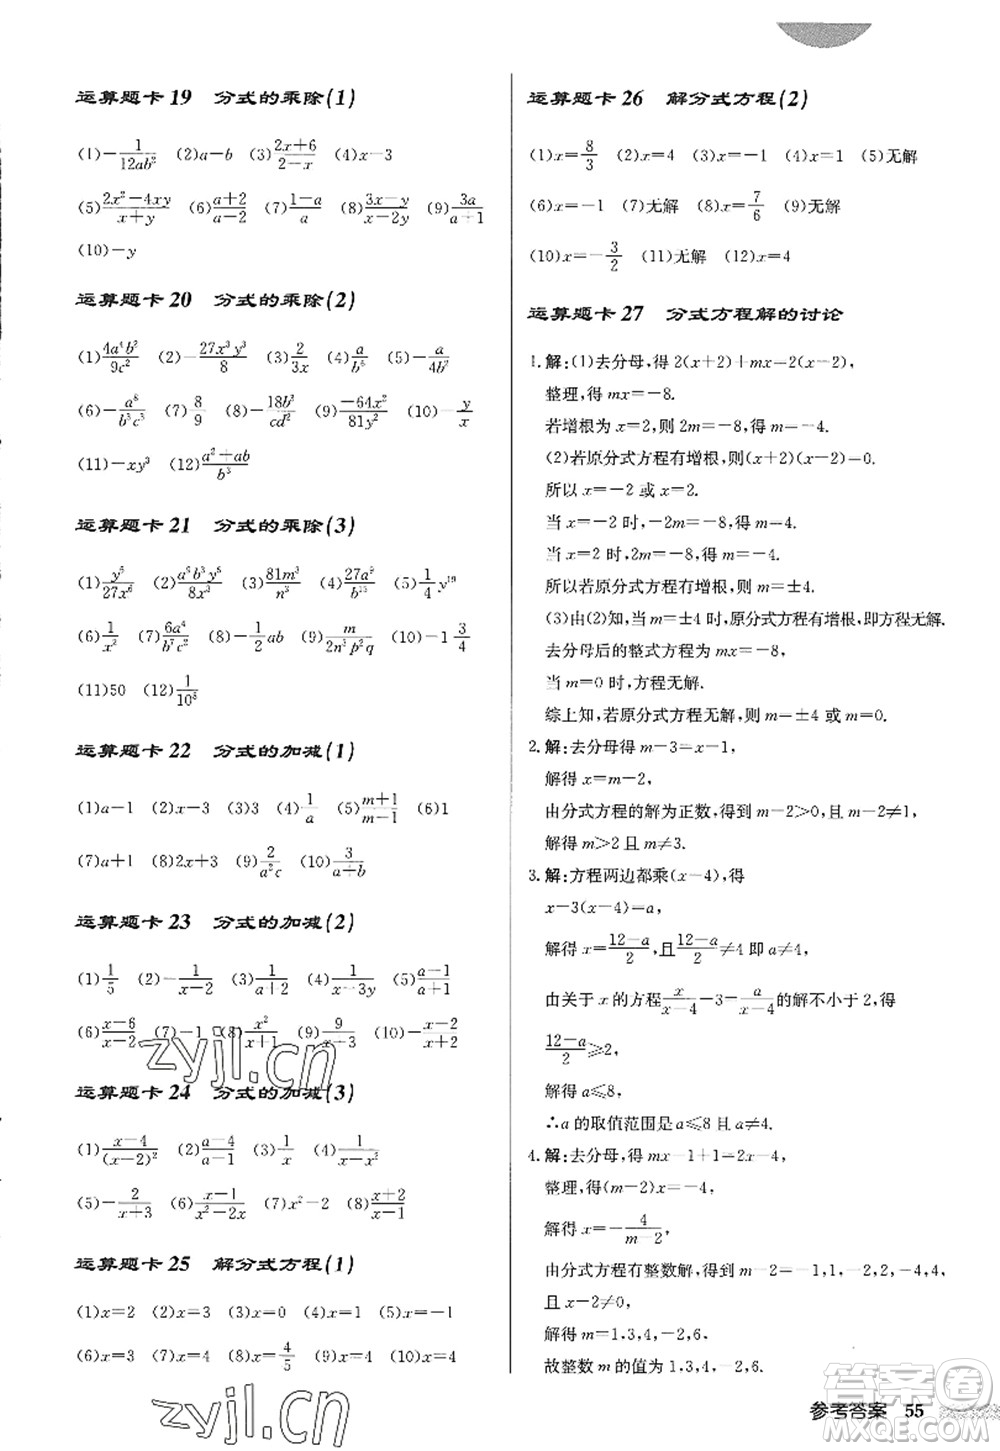 运算题卡 19 分式的乘除(1)
(1)-1/(12ab²) (2)a-b (3)(2x+6)/(2-x) (4)x-3
(5)(2x²-4xy)/(x+y) (6)(a+2)/(a-2) (7)(1-a)/a (8)(3x-y)/(x-2y) (9)3a/(a+1)
(10)-y
运算题卡 20 分式的乘除(2)
(1)4a⁴b²/(9c²) (2)-27x³y³/8 (3)2/(3x) (4)a/b⁵ (5)-a/(4b²)
(6)-a⁸/(b³c³) (7)8/9 (8)-18b²/(cd²) (9)-64x²/(81y²) (10)-y/x
(11)-xy³ (12)(a²+ab)/b³
运算题卡 21 分式的乘除(3)
(1)y⁵/(27x⁶) (2)a⁶b³y⁶/(8x³) (3)81m³/n³ (4)27a⁹/b¹⁵ (5)1/4 y¹⁹
(6)1/x² (7)6a⁴/(b⁷c⁵) (8)-1/2 ab (9)m/(2n³p²q) (10)-1 3/4
(11)50 (12)1/10⁸
运算题卡 22 分式的加减(1)
(1)a-1 (2)x-3 (3)3 (4)1/a (5)(m+1)/(m-1) (6)1
(7)a+1 (8)2x+3 (9)2/(a²c) (10)3/(a+b)
运算题卡 23 分式的加减(2)
(1)1/5 (2)-1/(x-2) (3)1/(a+2) (4)1/(x-3y) (5)(a-1)/(a+1)
(6)(x-6)/(x-2) (7)-1 (8)x²/(x+1) (9)9/(x-3) (10)-(x-2)/(x+2)
运算题卡 24 分式的加减(3)
(1)(x-4)/(x-2)² (2)(a-4)/(a-1) (3)1/x (4)1/(x-x²)
(5)-2/(x+3) (6)(x-1)/(x²-2x) (7)x²-2 (8)(x+2)/(x-1)
运算题卡 25 解分式方程(1)
(1)x=2 (2)x=3 (3)x=0 (4)x=1 (5)x=-1
(6)x=3 (7)x=2 (8)x=4/5 (9)x=1 (10)x=4
运算题卡 26 解分式方程(2)
(1)x=8/3 (2)x=4 (3)x=-1 (4)x=1 (5)无解
(6)x=-1 (7)无解 (8)x=7/6 (9)无解
(10)x=-3/2 (11)无解 (12)x=4
运算题卡 27 分式方程解的讨论
1.解:(1)去分母,得 2(x+2)+mx=2(x-2),
整理,得 mx=-8.
若增根为 x=2,则 2m=-8,得 m=-4.
(2)若原分式方程有增根,则(x+2)(x-2)=0.
所以 x=-2 或 x=2.
当 x=-2 时,-2m=-8,得 m=4.
当 x=2 时,2m=-8,得 m=-4.
所以若原分式方程有增根,则 m=±4.
(3)由(2)知,当 m=±4 时,原分式方程有增根,即方程无解.
去分母后的整式方程为 mx=-8,
当 m=0 时,方程无解.
综上知,若原分式方程无解,则 m=±4 或 m=0.
2.解:去分母得 m-3=x-1,
解得 x=m-2,
由分式方程的解为正数,得到 m-2>0,且 m-2≠1,
解得 m>2 且 m≠3.
3.解:方程两边都乘(x-4),得
x-3(x-4)=a,
解得 x=(12-a)/2,且(12-a)/2≠4 即 a≠4,
由关于 x 的方程x/(x-4)-3=a/(x-4)的解不小于 2,得
(12-a)/2≥2,
解得 a≤8,
∴a 的取值范围是 a≤8 且 a≠4.
4.解:去分母,得 mx-1+1=2x-4,
整理,得(m-2)x=-4,
解得 x=-4/(m-2),
由分式方程有整数解,得到 m-2=-1,1,-2,2,-4,4,
且 x-2≠0,
解得 m=1,3,4,-2,6.
故整数 m 的值为 1,3,4,-2,6.
zyjl.cn
zyjl.cn
答案圈
参考答案 55